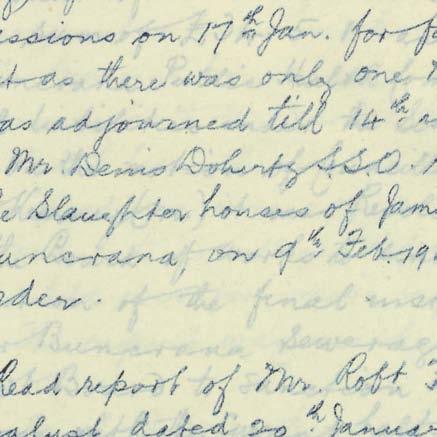 essions on 17th Jan. for f
t as there was only one
as adjourned till 14th
Mr. Denis Doherty S.S.O.
e Slaughter houses of Jam
uncrana, on 9th Feb. 19
rder.
Read report of Mr. Robt
nalyst dated 20th January